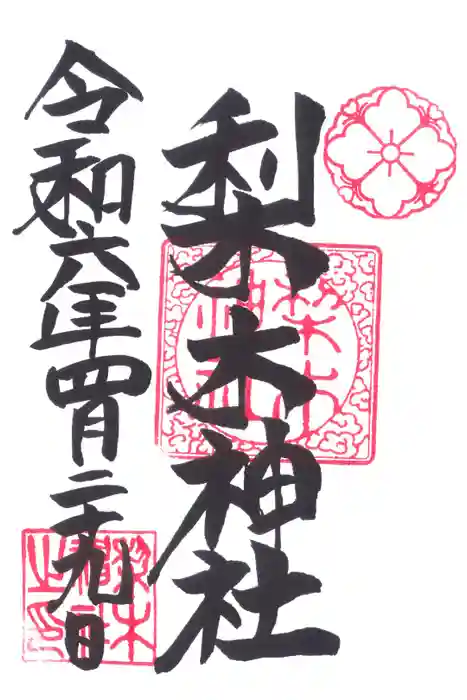 梨木神社
令和六年四月二十九日